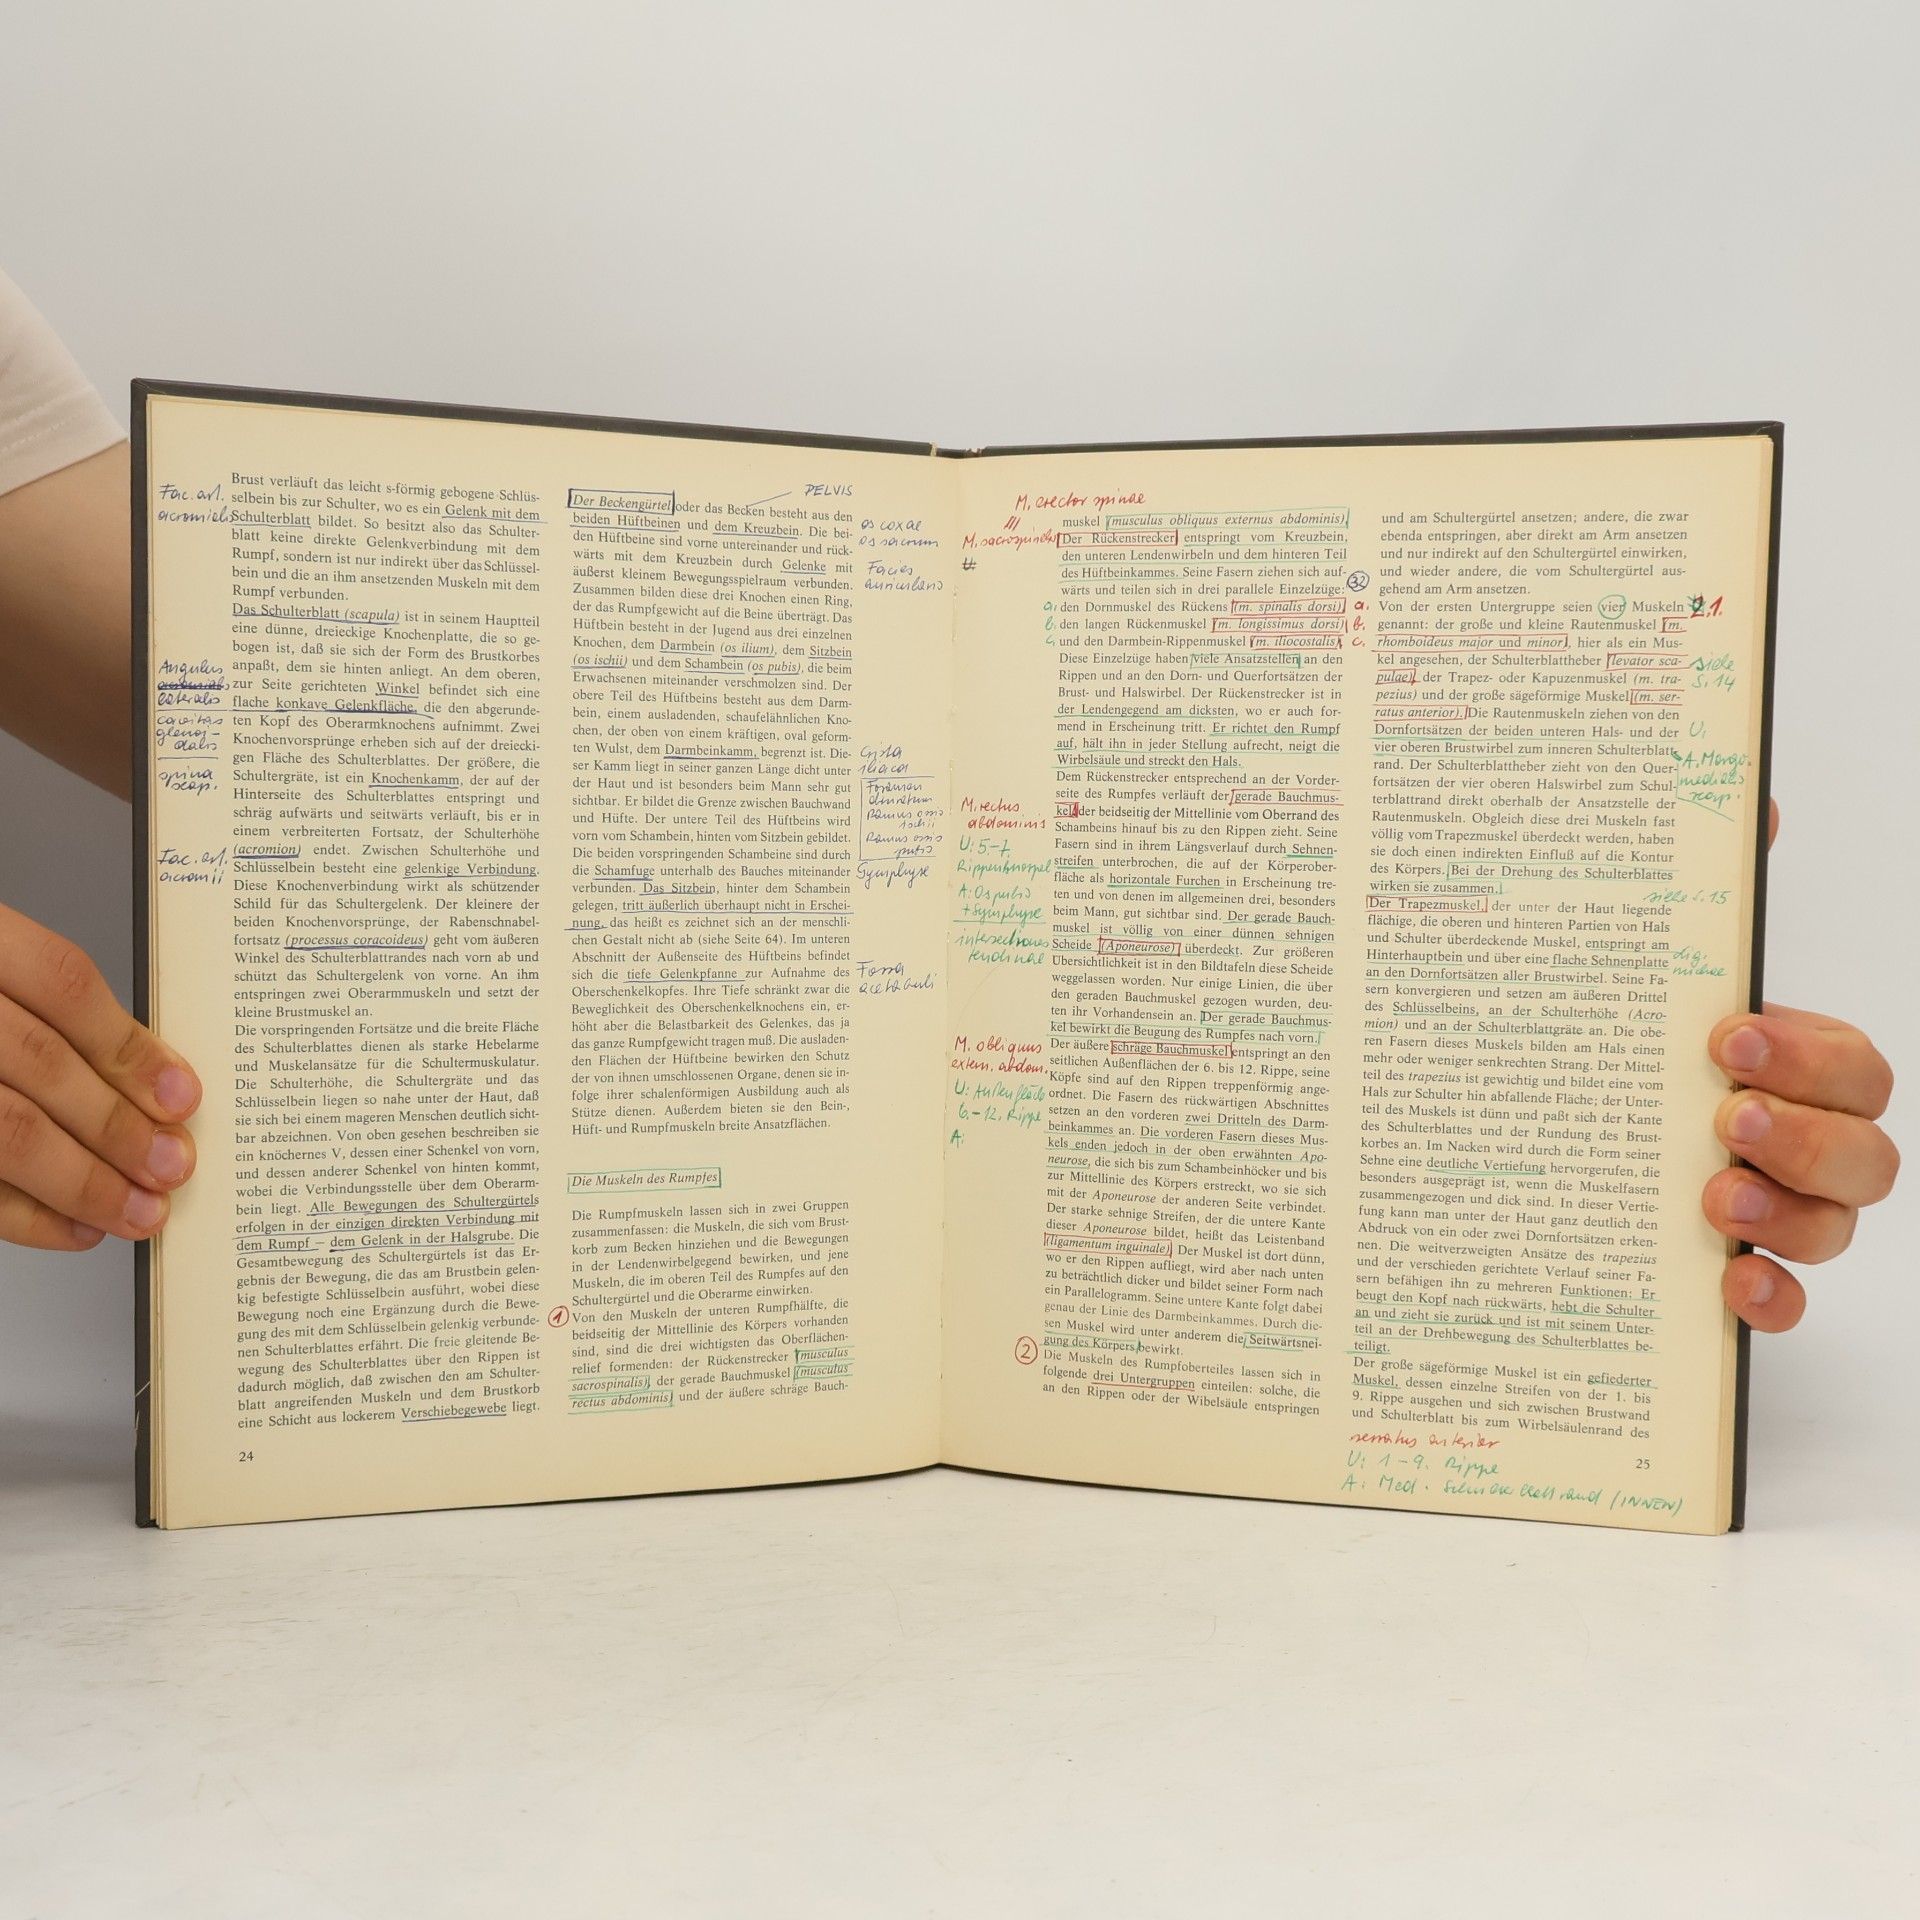 Brust verläuft das leicht s-förmig gebogene Schlüs-
selbein bis zur Schulter, wo es ein Gelenk mit dem
Schulterblatt bildet. So besitzt also das Schulter-
blatt keine direkte Gelenkverbindung mit dem
Rumpf, sondern ist nur indirekt über das Schlüssel-
bein und die an ihm ansetzenden Muskeln mit dem
Rumpf verbunden.
Das Schulterblatt (scapula) ist in seinem Hauptteil
eine dünne, dreieckige Knochenplatte, die so ge-
bogen ist, daß sie sich der Form des Brustkorbes
anpaßt, dem sie hinten anliegt. An dem oberen,
zur Seite gerichteten Winkel befindet sich eine
flache konkave Gelenkfläche, die den abgerunde-
ten Kopf des Oberarmknochens aufnimmt. Zwei
Knochenvorsprünge erheben sich auf der dreiecki-
gen Fläche des Schulterblattes. Der größere, die
Schultergräte, ist ein Knochenkamm, der auf der
Hinterseite des Schulterblattes entspringt und
schräg aufwärts und seitwärts verläuft, bis er in
einem verbreiterten Fortsatz, der Schulterhöhe
(acromion) endet. Zwischen Schulterhöhe und
Schlüsselbein besteht eine gelenkige Verbindung.
Diese Knochenverbindung wirkt als schützender
Schild für das Schultergelenk. Der kleinere der
beiden Knochenvorsprünge, der Rabenschnabel-
fortsatz (processus coracoideus) geht vom äußeren
Winkel des Schulterblattrandes nach vorn ab und
schützt das Schultergelenk von vorne. An ihm
entspringen zwei Oberarmmuskeln und setzt der
kleine Brustmuskel an.
Die vorspringenden Fortsätze und die breite Fläche
des Schulterblattes dienen als starke Hebelarme
und Muskelansätze für die Schultermuskulatur.
Die Schulterhöhe, die Schultergräte und das
Schlüsselbein liegen so nahe unter der Haut, daß
sie sich bei einem mageren Menschen deutlich sicht-
bar abzeichnen. Von oben gesehen beschreiben sie
ein knöchernes V, dessen einer Schenkel von vorn,
und dessen anderer Schenkel von hinten kommt,
wobei die Verbindungsstelle über dem Oberarm-
bein liegt. Alle Bewegungen des Schultergürtels
erfolgen in der einzigen direkten Verbindung mit
dem Rumpf – dem Gelenk in der Halsgrube. Die
Gesamtbewegung des Schultergürtels ist das Er-
gebnis der Bewegung, die das am Brustbein gelen-
kig befestigte Schlüsselbein ausführt, wobei diese
Bewegung noch eine Ergänzung durch die Bewe-
gung des mit dem Schlüsselbein gelenkig verbunde-
nen Schulterblattes erfährt. Die freie gleitende Be-
wegung des Schulterblattes über den Rippen ist
dadurch möglich, daß zwischen den am Schulter-
blatt angreifenden Muskeln und dem Brustkorb
eine Schicht aus lockerem Verschiebegewebe liegt.
24
Fac. art.
acromialis
Angulus
lateralis
cavitas
glenoi-
dalis
spina
scap.
Fac. art.
acromii
PELVIS
Der Beckengürtel oder das Becken besteht aus den
beiden Hüftbeinen und dem Kreuzbein. Die bei-
den Hüftbeine sind vorne untereinander und rück-
wärts mit dem Kreuzbein durch Gelenke mit
äußerst kleinem Bewegungsspielraum verbunden.
Zusammen bilden diese drei Knochen einen Ring,
der das Rumpfgewicht auf die Beine überträgt. Das
Hüftbein besteht in der Jugend aus drei einzelnen
Knochen, dem Darmbein (os ilium), dem Sitzbein
(os ischii) und dem Schambein (os pubis), die beim
Erwachsenen miteinander verschmolzen sind. Der
obere Teil des Hüftbeins besteht aus dem Darm-
bein, einem ausladenden, schaufelähnlichen Kno-
chen, der oben von einem kräftigen, oval geform-
ten Wulst, dem Darmbeinkamm, begrenzt ist. Die-
ser Kamm liegt in seiner ganzen Länge dicht unter
der Haut und ist besonders beim Mann sehr gut
sichtbar. Er bildet die Grenze zwischen Bauchwand
und Hüfte. Der untere Teil des Hüftbeins wird
vorn vom Schambein, hinten vom Sitzbein gebildet.
Die beiden vorspringenden Schambeine sind durch
die Schamfuge unterhalb des Bauches miteinander
verbunden. Das Sitzbein, hinter dem Schambein
gelegen, tritt äußerlich überhaupt nicht in Erschei-
nung, das heißt es zeichnet sich an der menschli-
chen Gestalt nicht ab (siehe Seite 64). Im unteren
Abschnitt der Außenseite des Hüftbeins befindet
sich die tiefe Gelenkpfanne zur Aufnahme des
Oberschenkelkopfes. Ihre Tiefe schränkt zwar die
Beweglichkeit des Oberschenkelknochens ein, er-
höht aber die Belastbarkeit des Gelenkes, das ja
das ganze Rumpfgewicht tragen muß. Die ausladen-
den Flächen der Hüftbeine bewirken den Schutz
der von ihnen umschlossenen Organe, denen sie in-
folge ihrer schalenförmigen Ausbildung auch als
Stütze dienen. Außerdem bieten sie den Bein-,
Hüft- und Rumpfmuskeln breite Ansatzflächen.
Die Muskeln des Rumpfes
Die Rumpfmuskeln lassen sich in zwei Gruppen
zusammenfassen: die Muskeln, die sich vom Brust-
korb zum Becken hinziehen und die Bewegungen
in der Lendenwirbelgegend bewirken, und jene
Muskeln, die im oberen Teil des Rumpfes auf den
Schultergürtel und die Oberarme einwirken.
1 Von den Muskeln der unteren Rumpfhälfte, die
beidseitig der Mittellinie des Körpers vorhanden
sind, sind die drei wichtigsten das Oberflächen-
relief formenden: der Rückenstrecker (musculus
sacrospinalis), der gerade Bauchmuskel (musculus
rectus abdominis) und der äußere schräge Bauch-
os coxae
os sacrum
Facies
auricularis
Crista
iliaca
Foramen
obturatum
Ramus ossis
ischii
Ramus ossis
pubis
Symphyse
Fossa
acetabuli
M. erector spinae
M. sacrospinalis
muskel (musculus obliquus externus abdominis).
Der Rückenstrecker entspringt vom Kreuzbein,
den unteren Lendenwirbeln und dem hinteren Teil
des Hüftbeinkammes. Seine Fasern ziehen sich auf-
wärts und teilen sich in drei parallele Einzelzüge: 32
a. den Dornmuskel des Rückens (m. spinalis dorsi)
b. den langen Rückenmuskel (m. longissimus dorsi)
c. und den Darmbein-Rippenmuskel (m. iliocostalis).
Diese Einzelzüge haben viele Ansatzstellen an den
Rippen und an den Dorn- und Querfortsätzen der
Brust- und Halswirbel. Der Rückenstrecker ist in
der Lendengegend am dicksten, wo er auch for-
mend in Erscheinung tritt. Er richtet den Rumpf
auf, hält ihn in jeder Stellung aufrecht, neigt die
Wirbelsäule und streckt den Hals.
Dem Rückenstrecker entsprechend an der Vorder-
seite des Rumpfes verläuft der gerade Bauchmus-
kel, der beidseitig der Mittellinie vom Oberrand des
Schambeins hinauf bis zu den Rippen zieht. Seine
Fasern sind in ihrem Längsverlauf durch Sehnen-
streifen unterbrochen, die auf der Körperober-
fläche als horizontale Furchen in Erscheinung tre-
ten und von denen im allgemeinen drei, besonders
beim Mann, gut sichtbar sind. Der gerade Bauch-
muskel ist völlig von einer dünnen sehnigen
Scheide (Aponeurose) überdeckt. Zur größeren
Übersichtlichkeit ist in den Bildtafeln diese Scheide
weggelassen worden. Nur einige Linien, die über
den geraden Bauchmuskel gezogen wurden, deu-
ten ihr Vorhandensein an. Der gerade Bauchmus-
kel bewirkt die Beugung des Rumpfes nach vorn.
Der äußere schräge Bauchmuskel entspringt an den
seitlichen Außenflächen der 6. bis 12. Rippe, seine
Köpfe sind auf den Rippen treppenförmig ange-
ordnet. Die Fasern des rückwärtigen Abschnittes
setzen an den vorderen zwei Dritteln des Darm-
beinkammes an. Die vorderen Fasern dieses Mus-
kels enden jedoch in der oben erwähnten Apo-
neurose, die sich bis zum Schambeinhöcker und bis
zur Mittellinie des Körpers erstreckt, wo sie sich
mit der Aponeurose der anderen Seite verbindet.
Der starke sehnige Streifen, der die untere Kante
dieser Aponeurose bildet, heißt das Leistenband
(ligamentum inguinale). Der Muskel ist dort dünn,
wo er den Rippen aufliegt, wird aber nach unten
zu beträchtlich dicker und bildet seiner Form nach
ein Parallelogramm. Seine untere Kante folgt dabei
genau der Linie des Darmbeinkammes. Durch die-
sen Muskel wird unter anderem die Seitwärtsnei-
gung des Körpers bewirkt.
2 Die Muskeln des Rumpfoberteiles lassen sich in
folgende drei Untergruppen einteilen: solche, die
an den Rippen oder der Wibelsäule entspringen
M. rectus
abdominis
U: 5.-7.
Rippenknorpel
A: Os pubis
+ Symphyse
intersectiones
tendinae
M. obliquus
extern. abdom.
U: Außenfläch
6.-12. Rippe
A:
und am Schultergürtel ansetzen; andere, die zwar
ebenda entspringen, aber direkt am Arm ansetzen
und nur indirekt auf den Schultergürtel einwirken,
und wieder andere, die vom Schultergürtel aus-
gehend am Arm ansetzen.
a. Von der ersten Untergruppe seien vier Muskeln 2.1.
b. genannt: der große und kleine Rautenmuskel (m.
c. rhomboideus major und minor), hier als ein Mus-
kel angesehen, der Schulterblattheber (levator sca-
pulae), der Trapez- oder Kapuzenmuskel (m. tra-
pezius) und der große sägeförmige Muskel (m. ser-
ratus anterior). Die Rautenmuskeln ziehen von den
Dornfortsätzen der beiden unteren Hals- und der
vier oberen Brustwirbel zum inneren Schulterblatt-
rand. Der Schulterblattheber zieht von den Quer-
fortsätzen der vier oberen Halswirbel zum Schul-
terblattrand direkt oberhalb der Ansatzstelle der
Rautenmuskeln. Obgleich diese drei Muskeln fast
völlig vom Trapezmuskel überdeckt werden, haben
sie doch einen indirekten Einfluß auf die Kontur
des Körpers. Bei der Drehung des Schulterblattes
wirken sie zusammen.
Der Trapezmuskel, der unter der Haut liegende
flächige, die oberen und hinteren Partien von Hals
und Schulter überdeckende Muskel, entspringt am
Hinterhauptbein und über eine flache Sehnenplatte
an den Dornfortsätzen aller Brustwirbel. Seine Fa-
sern konvergieren und setzen am äußeren Drittel
des Schlüsselbeins, an der Schulterhöhe (Acro-
mion) und an der Schulterblattgräte an. Die obe-
ren Fasern dieses Muskels bilden am Hals einen
mehr oder weniger senkrechten Strang. Der Mittel-
teil des trapezius ist gewichtig und bildet eine vom
Hals zur Schulter hin abfallende Fläche; der Unter-
teil des Muskels ist dünn und paßt sich der Kante
des Schulterblattes und der Rundung des Brust-
korbes an. Im Nacken wird durch die Form seiner
Sehne eine deutliche Vertiefung hervorgerufen, die
besonders ausgeprägt ist, wenn die Muskelfasern
zusammengezogen und dick sind. In dieser Vertie-
fung kann man unter der Haut ganz deutlich den
Abdruck von ein oder zwei Dornfortsätzen erken-
nen. Die weitverzweigten Ansätze des trapezius
und der verschieden gerichtete Verlauf seiner Fa-
sern befähigen ihn zu mehreren Funktionen: Er
beugt den Kopf nach rückwärts, hebt die Schulter
an und zieht sie zurück und ist mit seinem Unter-
teil an der Drehbewegung des Schulterblattes be-
teiligt.
Der große sägeförmige Muskel ist ein gefiederter
Muskel, dessen einzelne Streifen von der 1. bis
9. Rippe ausgehen und sich zwischen Brustwand
und Schulterblatt bis zum Wirbelsäulenrand des
siehe
S. 14
U,
A. Margo
medialis
scap.
siehe S. 15
lig.
nuchae
serratus anterior
U: 1-9. Rippe
A: Med. Schulterblattrand (INNEN)
25